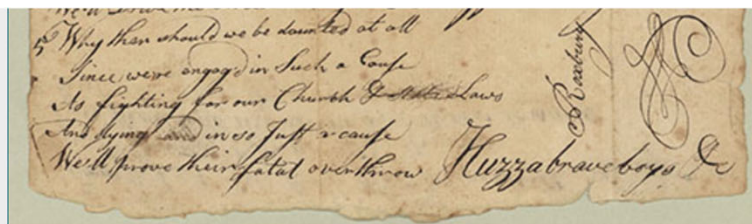 5 Why then should we be daunted at all
Since we've engag'd in Such a Cause
As fighting for our Church & Laws
And dying in so Just a cause
We'll prove their fatal overthrow Huzza brave boys &c
Roxbury